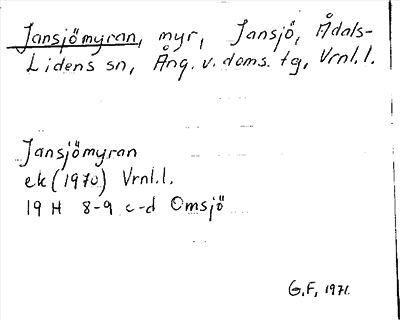 Jansjömyran, myr, Jansjö, Ådals-
Lidens sn, Ång. v. doms. tg, Vrnl.l.
Jansjömyran
ek (1970) Vrnl.l.
19 H 8-9 c-d Omsjö
G.F, 1971.